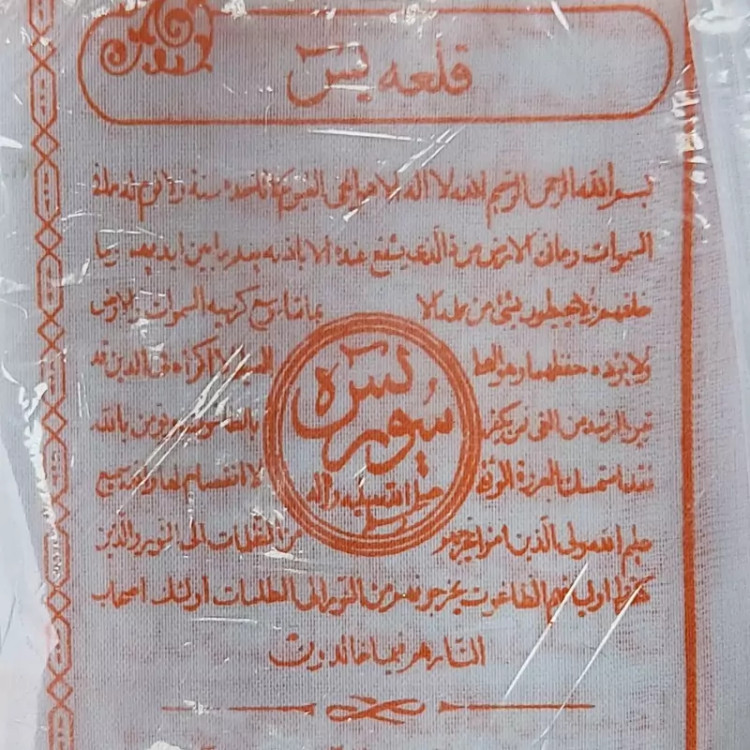 قلعه یس
بسم الله الرحمن الرحیم الله لا اله الا هو الحی القیوم لا تاخذه سنة ولا نوم له ما فی
السموات وما فی الارض من ذا الذی یشفع عنده الا باذنه یعلم ما بین ایدیهم وما
خلفهم ولا یحیطون بشئ من علمه الا بما شاء وسع کرسیه السموات والارض
ولا یؤده حفظهما وهو العلی العظیم لا اکراه فی الدین قد
تبین الرشد من الغی فمن یکفر بالطاغوت ویؤمن بالله
فقد استمسک بالعروة الوثقی لا انفصام لها والله سمیع
علیم الله ولی الذین امنوا یخرجهم من الظلمات الی النور والذین
کفروا اولیاؤهم الطاغوت یخرجونهم من النور الی الظلمات اولئک اصحاب
النار هم فیها خالدون
سوره یس
صلی الله علیه وآله
وسلم